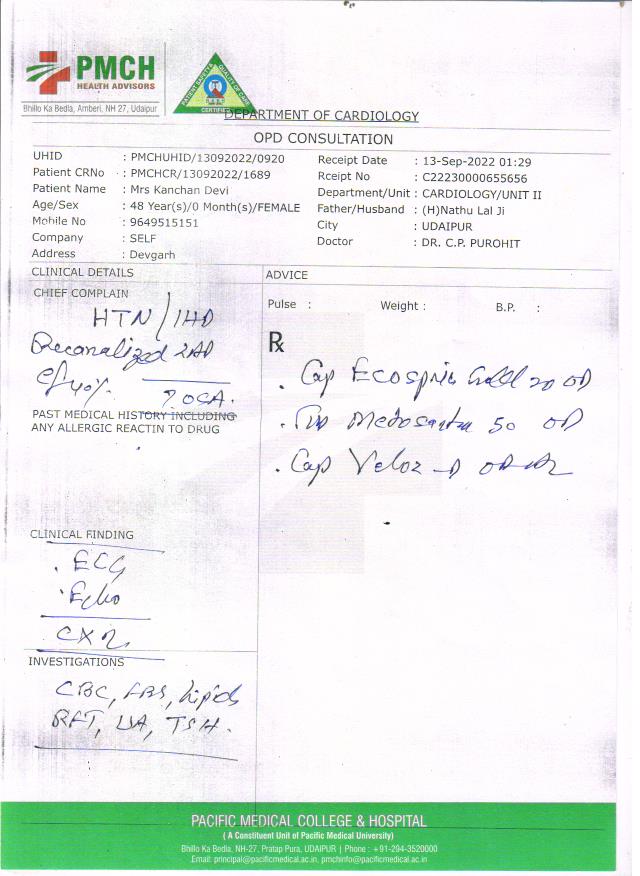 PMCH
HEALTH ADVISORS
Bhillo Ka Bedla, Amberi, NH 27, Udaipur
PATIENT SAFETY & QUALITY OF CARE
CERTIFIED
DEPARTMENT OF CARDIOLOGY
OPD CONSULTATION
UHID : PMCHUHID/13092022/0920
Receipt Date : 13-Sep-2022 01:29
Patient CRNo : PMCHCR/13092022/1689
Rceipt No : C22230000655656
Patient Name : Mrs Kanchan Devi
Department/Unit : CARDIOLOGY/UNIT II
Age/Sex : 48 Year(s)/0 Month(s)/FEMALE
Father/Husband : (H)Nathu Lal Ji
Mobile No : 9649515151
City : UDAIPUR
Company : SELF
Doctor : DR. C.P. PUROHIT
Address : Devgarh
CLINICAL DETAILS
ADVICE
CHIEF COMPLAIN
Pulse : Weight : B.P. :
HTN/IHD
Recanalized LAD
ef 40%
? OSA.
PAST MEDICAL HISTORY INCLUDING
ANY ALLERGIC REACTIN TO DRUG
Rx
. Cap Ecosprin Gold 20 OD
. Metosartan 50 OD
. Cap Veloz-D OD
CLINICAL FINDING
. ECG
. Echo
CXR
INVESTIGATIONS
CBC, FBS, Lipids
RFT, UA, TSH.
PACIFIC MEDICAL COLLEGE & HOSPITAL
( A Constituent Unit of Pacific Medical University)
Bhillo Ka Bedla, NH-27, Pratap Pura, UDAIPUR | Phone : +91-294-3520000
Email: principal@pacificmedical.ac.in, pmchinfo@pacificmedical.ac.in